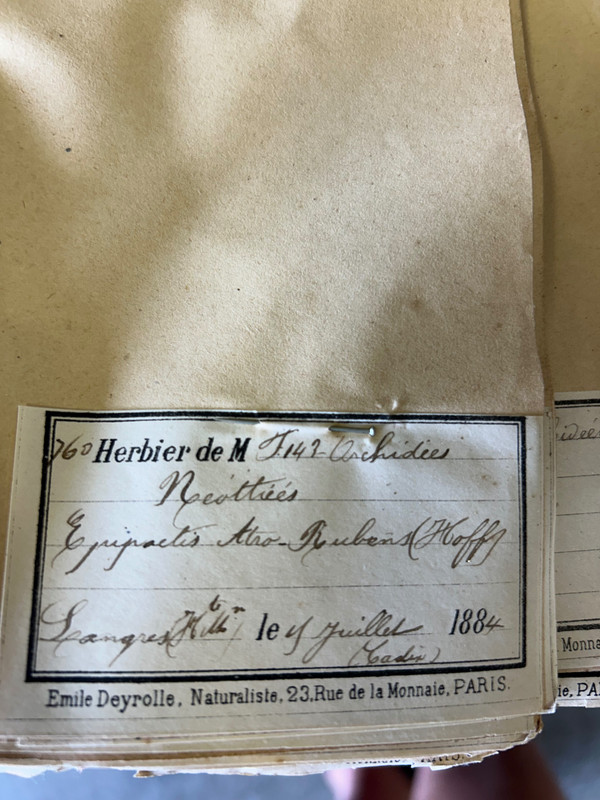 760 Herbier de M F. 142 Orchidées
Néottiées
Epipactis Atro-Rubens (Hoff)
Langres (Hte Mn) le Juillet 1884
Emile Deyrolle, Naturaliste, 23, Rue de la Monnaie, PARIS.
Monna
ie, PA